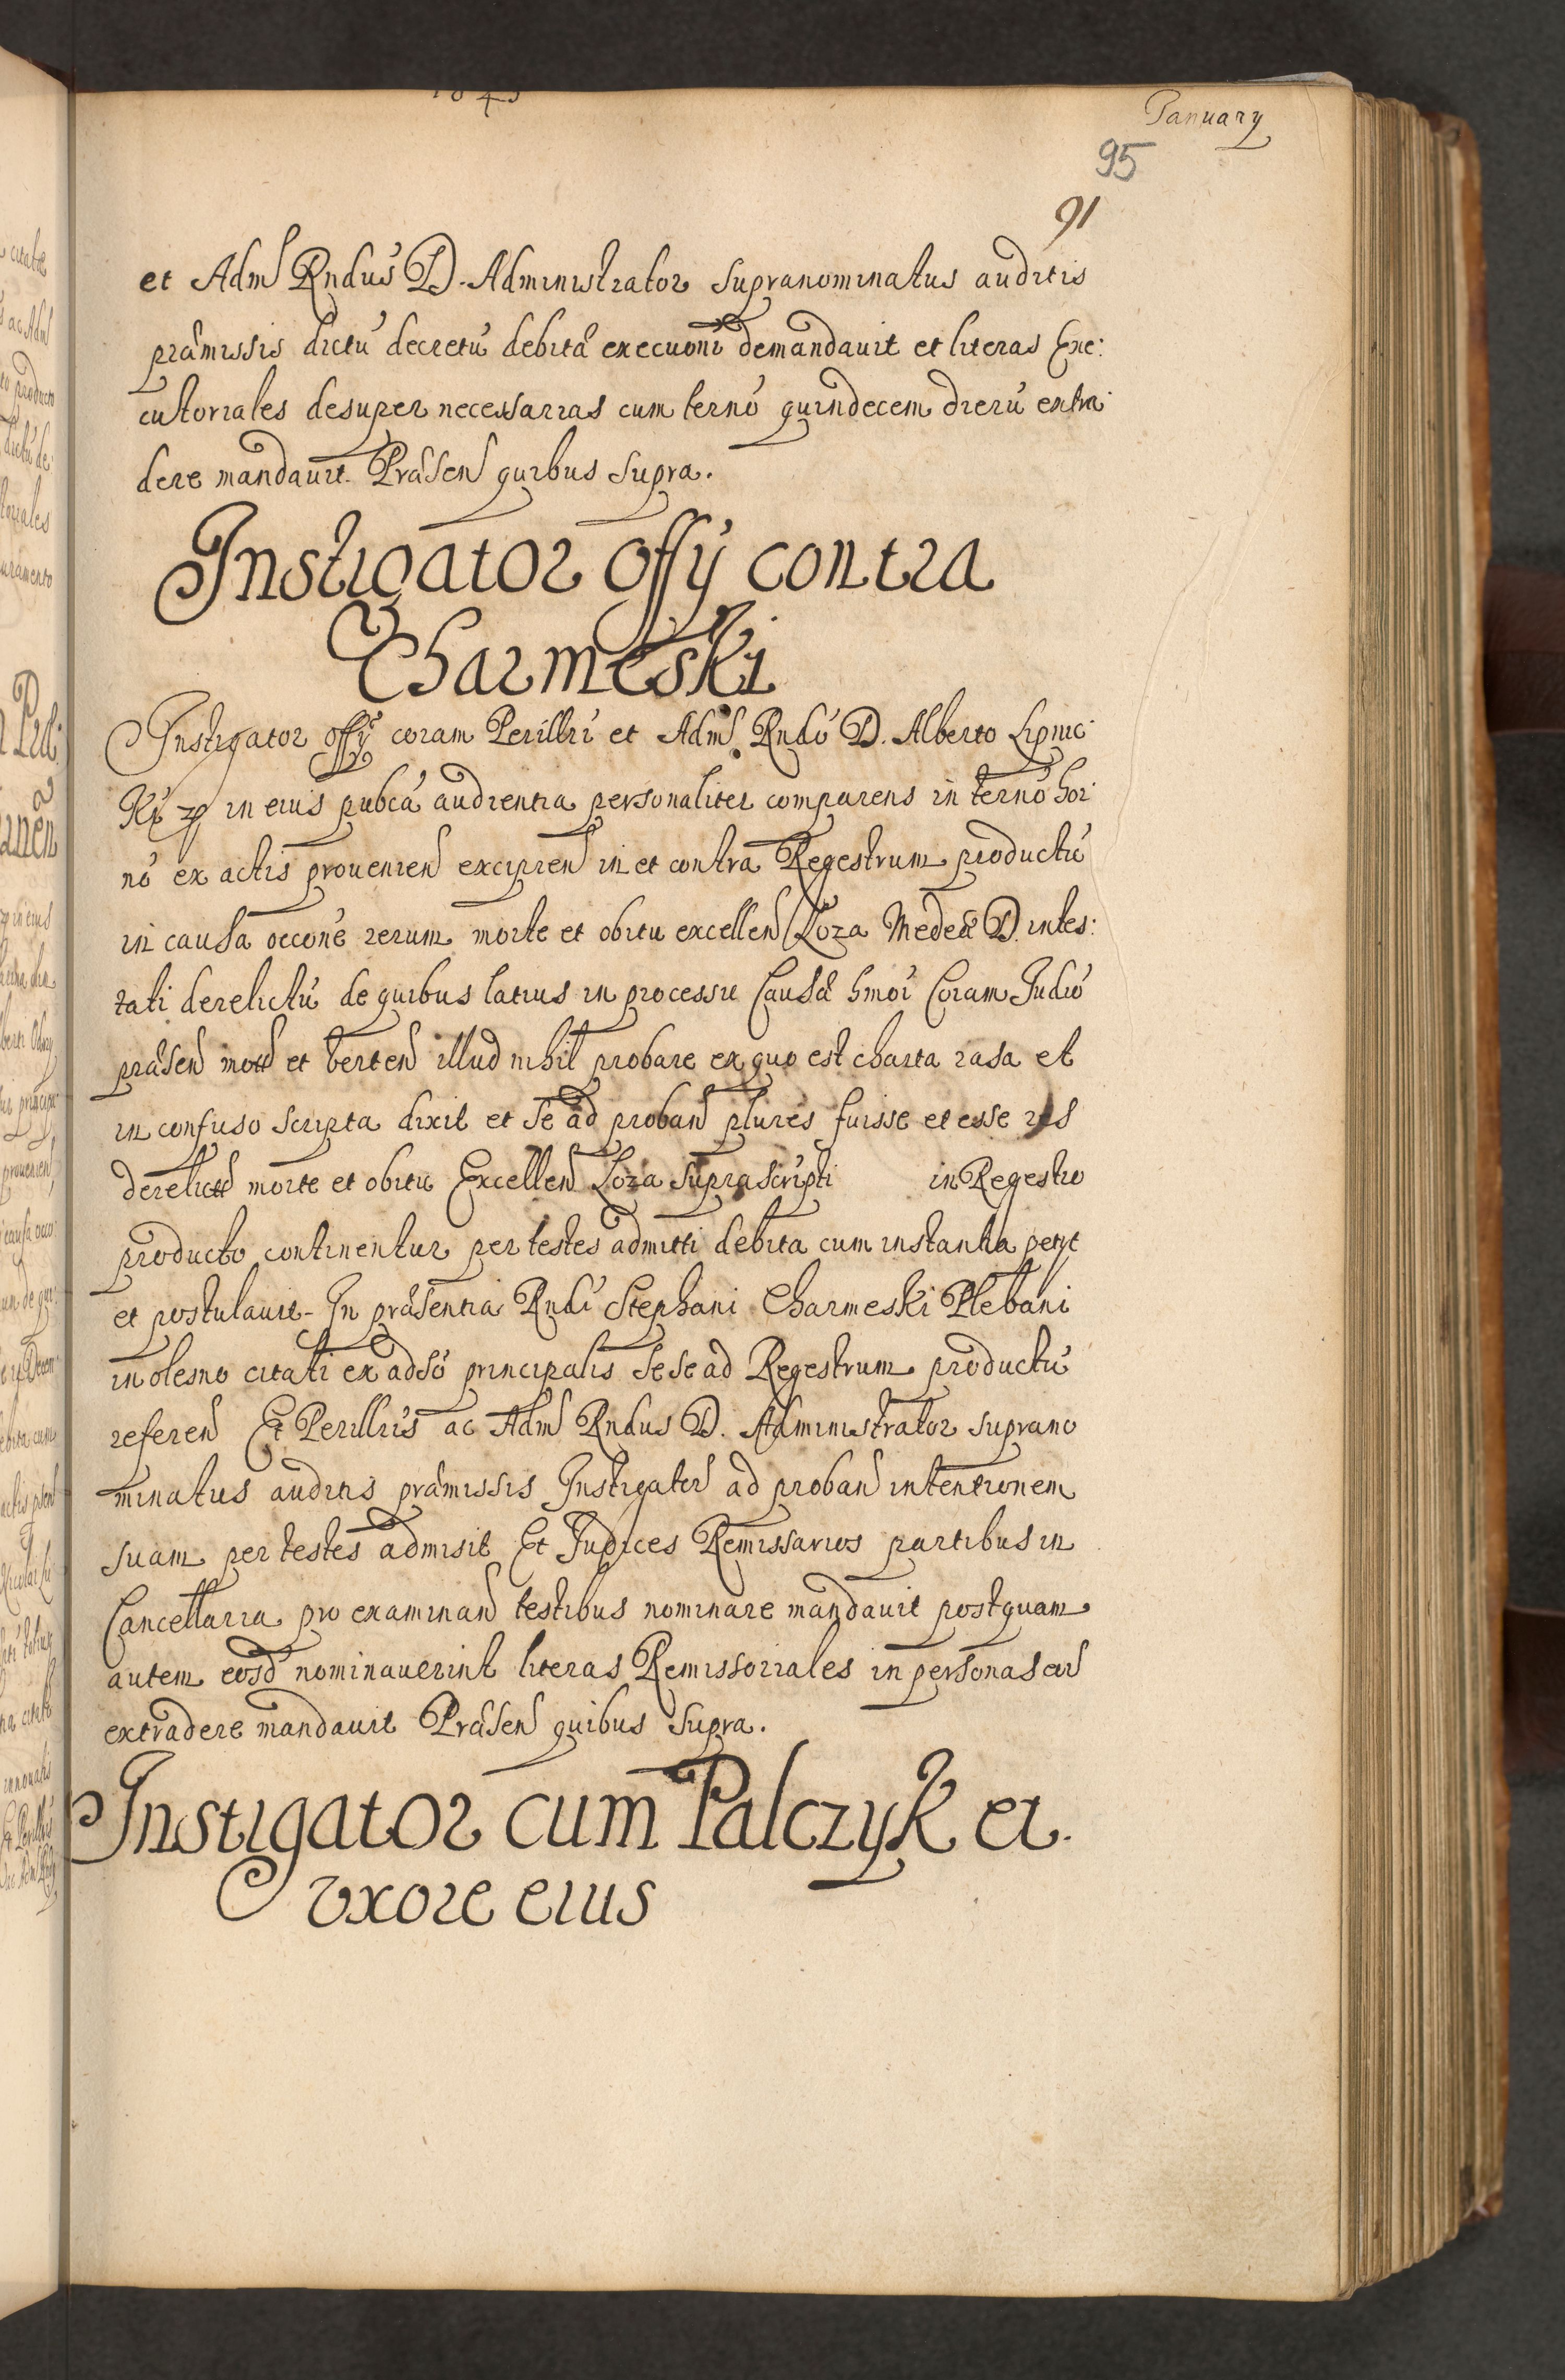 January
95
91
et Adm Rndus D. Administrator supranominatus auditis
præmissis dictú decretú debitæ execuoni demandauit et literas Exe:
cutoriales desuper necessarias cum termó quindecem dierú extra
dere mandauit. Præsen quibus supra.
Instigator offy contra
Charmeski
Instigator offy coram Perillri et Adm Rndo D. Alberto Lipnic
Ki in eius pubca audientia personaliter comparens in termó hoi
nó ex actis prouenien excipien in et contra Regestrum productú
in causa occone rerum morte et obitu excellen Loza Medeæ D. intes:
tati derelictú de quibus latius in processu Causæ hmoi Coram Judió
præsen et illud nihil probare ex quo est charta rasa et
in confuso scripta dixit et se ad proban plures fuisse et esse res
derelictt morte et obitu Excellen Loza suprascripti in Regestro
producto continentur per testes admitti debita cum instantia petyt
et postulauit. In præsentia Rndi Stephani Charmeski Plebani
in olesno citati ex adsó principalis sese ad Regestrum productú
referen Et Perillris ac Adm Rndus D. Administrator suprano
minatus auditis præmissis Instigator ad proban intentionem
suam per testes admisit Et Judices Remissarios partibus in
Cancellaria pro examinan testibus nominare mandauit postquam
autem eosd nominauerint literas Remissoriales in personas
extradere mandauit Præsen quibus supra.
Instigator cum Palczyk et
vxore eius